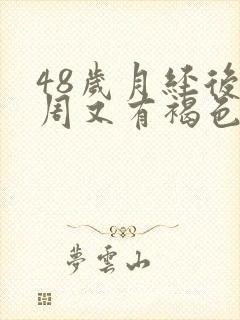 48歲月經後
周又有褐色
夢雲山